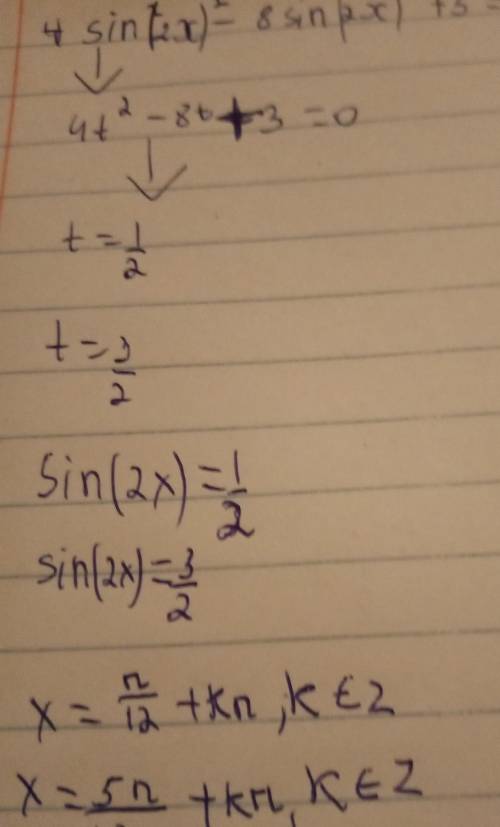 4 sin(2x)² - 8 sin(2x) + 3 =
4t² - 8t + 3 = 0
t = 1/2
t = 3/2
sin(2x) = 1/2
sin(2x) = 3/2
x = π/12 + kπ, k ∈ Z
x = 5π + kπ, k ∈ Z